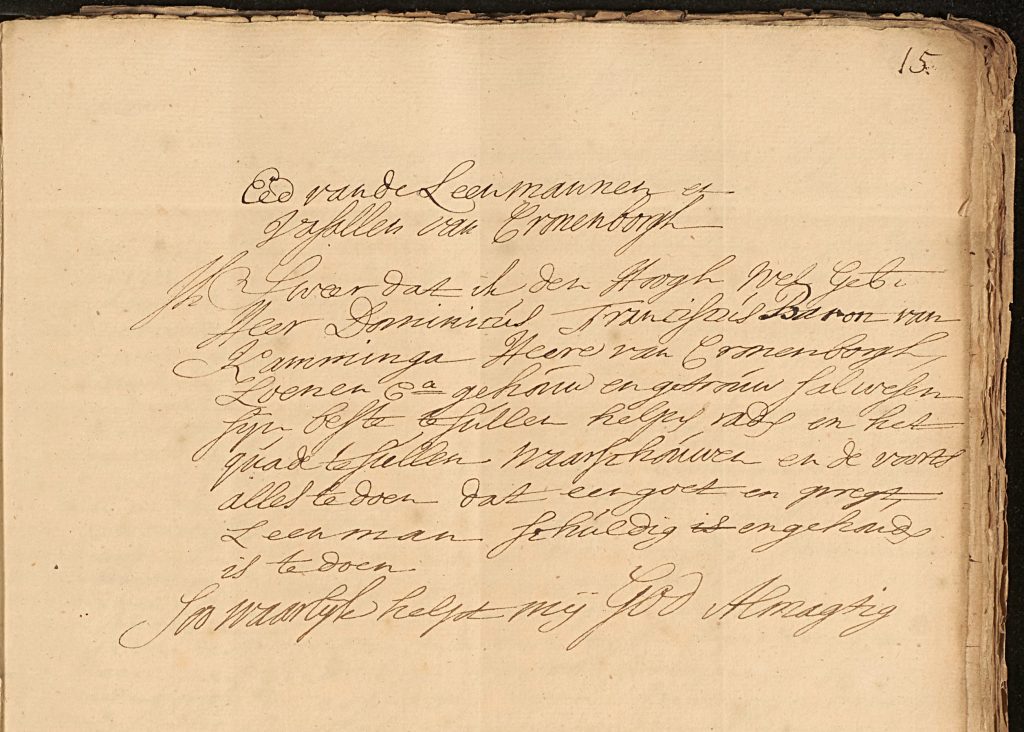 15.
Eed van de Leenmannen en
Vasallen van Cronenborgh
Ik Sweer dat ik den Hoogh Wel Geb.
Heer Dominicús Franciscús Baron van
Kamminga Heere van Cronenborgh,
Loenen &a gehoúw en getroúw sal wesen
sijn beste te súllen helpen raden en het
quade te súllen waarschoúwen en de voorts
alles te doen dat een goet en opregt,
Leenman schúldig is en gehouden
is te doen
Soo waarlijk helpt mij God Almagtig